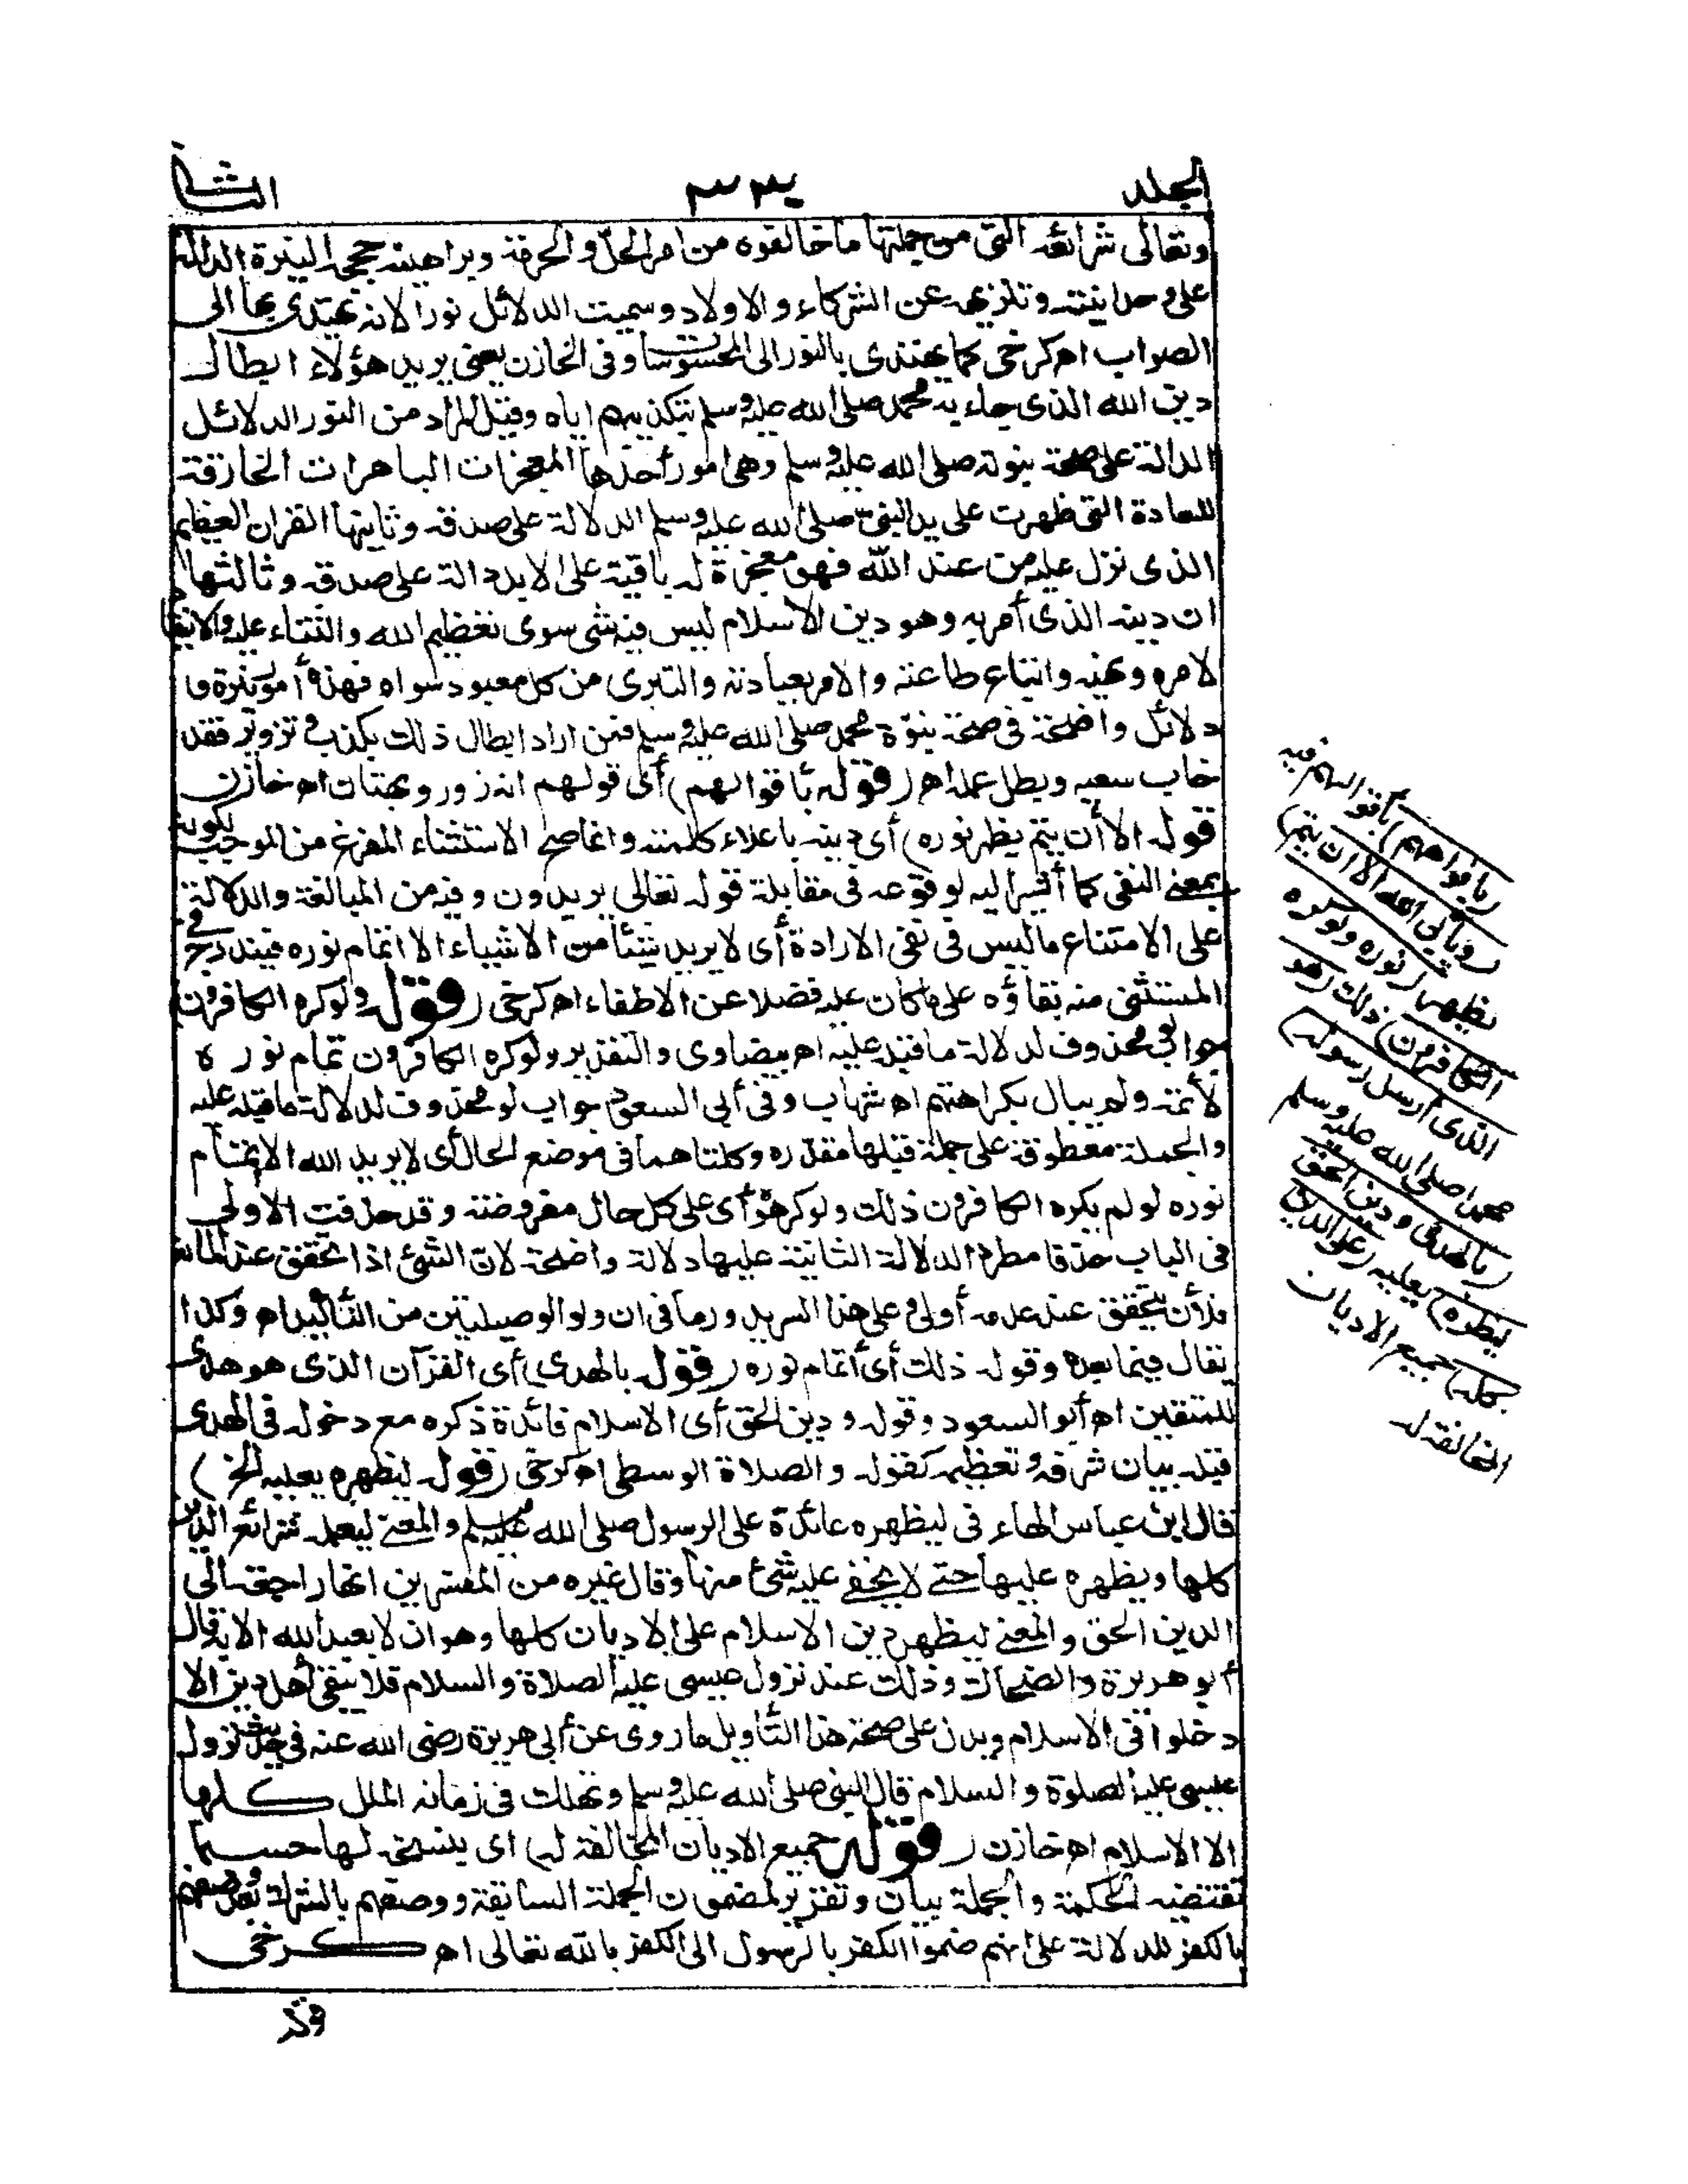 الجلد ٣٣٠ الثانی
وتعالى شرائعه التى من جملتها ما خالفوه من امر الحل والحرمة وبراهينه حججه النيرة الدالة
على وحدانيته وتنزيهه عن الشركاء والاولاد وسميت الدلائل نورا لانه يهتدى بها الى
الصواب اه كرخى كما يهتدى بالنور الى المحسوسات وفى الخازن يعنى يريد هؤلاء ابطال
دين الله الذى جاء به محمد صلى الله عليه وسلم بتكذيبهم اياه وقيل المراد من النور الدلائل
الدالة على صحة نبوته صلى الله عليه وسلم وهى امور أحدها المعجزات الباهرات الخارقة
للعادة التى ظهرت على يد النبى صلى الله عليه وسلم الدلالة على صدقه وثانيها القران العظيم
الذى نزل عليه من عند الله فهو معجزة له باقية على الابد دالة على صدقه وثالثها
ان دينه الذى أمر به وهو دين الاسلام ليس فيه شى سوى تعظيم الله والثناء عليه والانقيا
لامره ونهيه واتباع طاعته والامر بعبادته والتبرى من كل معبود سواه فهذه أمور نيرة و
دلائل واضحة فى صحة نبوة محمد صلى الله عليه وسلم فمن اراد ابطال ذلك بكذب وتزوير فقد
خاب سعيه وبطل عمله اه (قوله باقوالهم) أى قولهم انه زور وبهتان اه خازن
قوله الا أن يتم يظهر نوره) أى دينه باعلاء كلمته وانما صح الاستثناء المفرغ من الموجب لكونه
بمعنى النفى كما أشير اليه لوقوعه فى مقابلة قوله تعالى يريدون وفيه من المبالغة والدلالة
على الامتناع ما ليس فى نفى الارادة أى لا يريد شيئا من الاشياء الا اتمام نوره فيندرج فى
المستثنى منه بقاؤه على ما كان عليه فضلا عن الاطفاء اه كرخى (قوله ولو كره الكافرون)
جوابه محذوف لدلالة ما قبله عليه اه بيضاوى والتقدير ولو كره الكافرون تمام نوره
لأتمه ولم يبال بكراهتهم اه شهاب وفى أبى السعود جواب لو محذوف لدلالة ما قبله عليه
والجملة معطوفة على جملة قبلها مقدره وكلتاهما فى موضع الحال أى لا يريد الله الا اتمام
نوره لو لم يكره الكافرون ذلك ولو كرهوه أى على كل حال مفروضته وقد حذفت الاولى
فى الباب حذفا مطردا لدلالة الثانية عليها دلالة واضحة لان الشئ اذا تحقق عند المانع
فلأن يتحقق عند عدمه أولى وعلى هذا السر يدور ما فى ان ولو الوصيلتين من التأكيد اه وكذا
يقال فيما بعده وقوله ذلك أى أتمام نوره (قوله بالهدى) أى القرآن الذى هو هدى
للمتقين اه أبو السعود وقوله ودين الحق أى الاسلام فائدة ذكره مع دخوله فى الهدى
قبله بيان شرفه وتعظيمه كقوله والصلاة الوسطى اه كرخى (قوله ليظهره يعليه الخ)
قال ابن عباس الهاء فى ليظهره عائدة على الرسول صلى الله عليه وسلم والمعنى ليعلمه شرائع الدين
كلها ويظهره عليها حتى لا يخفى عليه شئ منها وقال غيره من المفسرين انها راجعة الى
الدين الحق والمعنى ليظهر دين الاسلام على الاديان كلها وهو ان لا يعبد الله الا به قال
أبو هريرة والضحاك وذلك عند نزول عيسى عليه الصلاة والسلام فلا يبقى أهل دين الا
دخلوا فى الاسلام ويدل على صحة هذا التأويل ما روى عن أبى هريرة رضى الله عنه فى حديث نزول
عيسى عليه الصلوة والسلام قال النبى صلى الله عليه وسلم وتهلك فى زمانه الملل كلها
الا الاسلام اه خازن (قوله جميع الاديان المخالفة له) اى ينسخه لها حسبما
تقتضيه الحكمة والجملة بيان وتقرير لمضمون الجملة السابقة ووصفهم بالشرك بعد وصفهم
بالكفر للدلالة على انهم ضموا الكفر بالرسول الى الكفر بالله تعالى اه كرخى
وقد
(بافواههم) بأقوالهم فيه
(ويأبى الله الا ان يتم)
يظهر (نوره ولو كره
الكافرون) ذلك (هو
الذى أرسل رسوله)
محمدا صلى الله عليه وسلم
(بالهدى ودين الحق
ليظهره) يعليه (على الدين
كله) جميع الاديان
المخالفة له